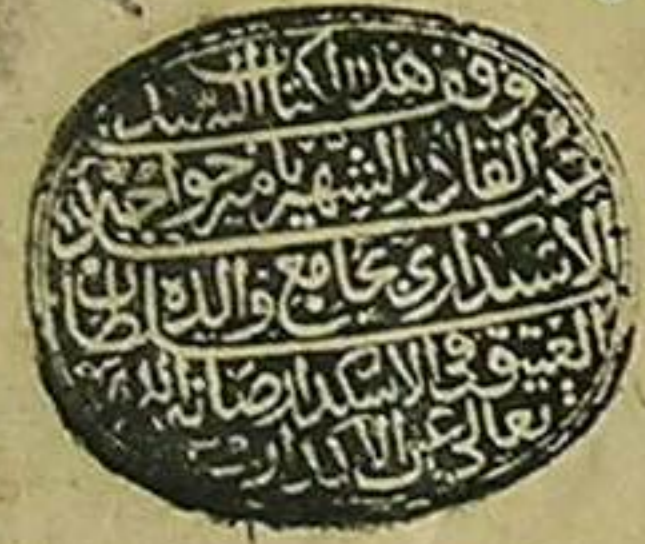 وقف هذا الكتاب السيد
عبد القادر الشهير بامير خواجه
الاسكداري بجامع والدة سلطان
العتيق في الاسكدار صانه الله
تعالى عن الاكدار